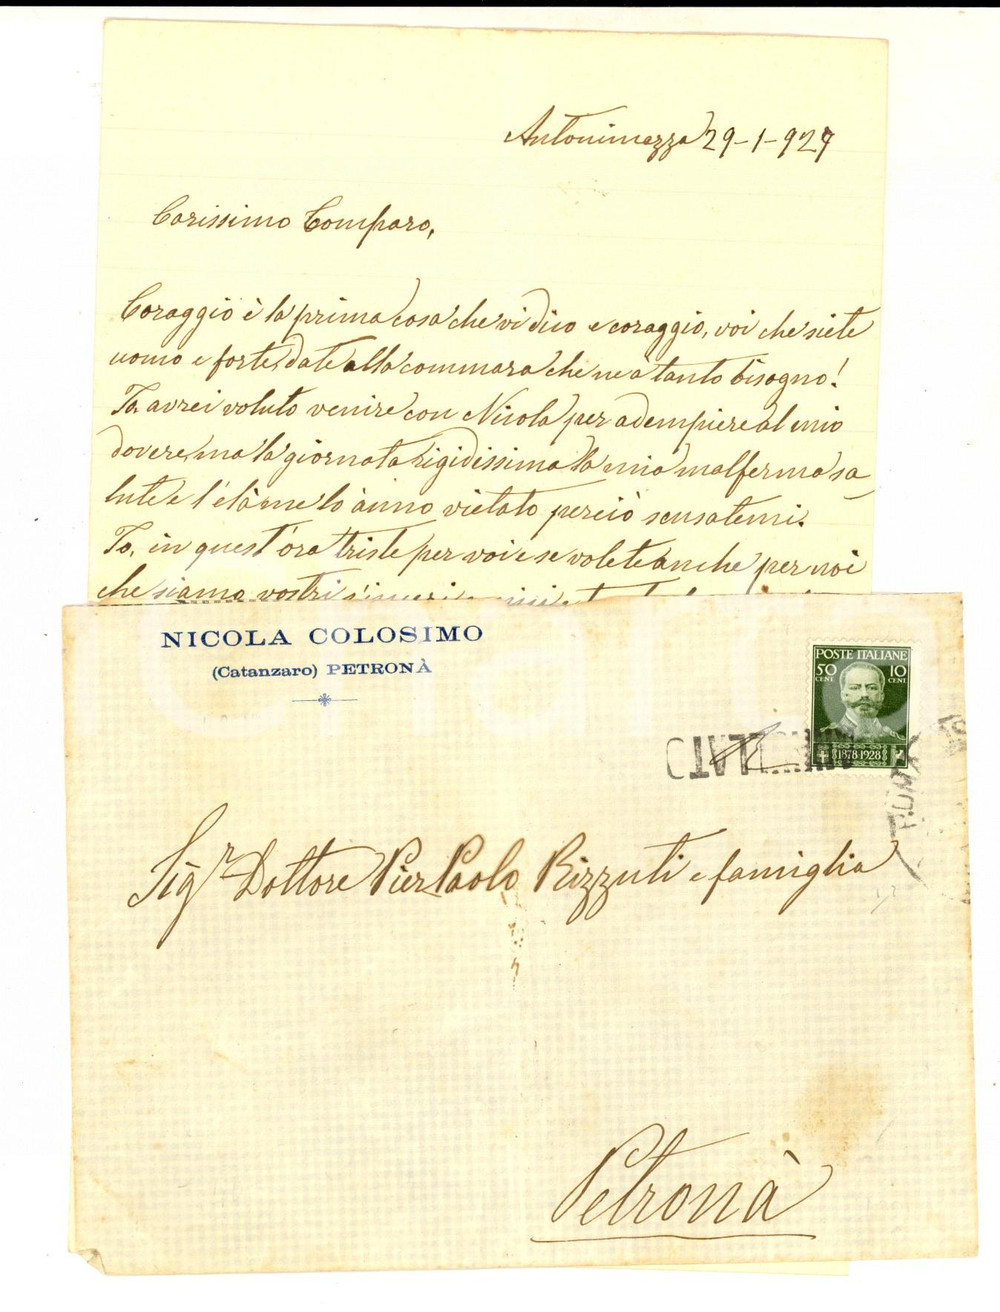 Antonimazza 29-1-929
Carissimo Comparo,
Coraggio è la prima cosa che vi dico e coraggio, voi che siete
uomo e forte, date alla commara che ne a tanto bisogno!
Io, avrei voluto venire con Nicola per adempiere al mio
dovere, ma la giornata rigidissima la mia malferma sa_
lute e l'età me lo ànno vietato perciò scusatemi.
Io, in quest'ora triste per voi e se volete anche per noi
che siamo vostri sinceri
NICOLA COLOSIMO
(Catanzaro) PETRONÀ
POSTE ITALIANE
50 CENT 10 CENT
1878-1928
ROMA
Sigr Dottore Pier Paolo Rizzuti e famiglia
Petronà